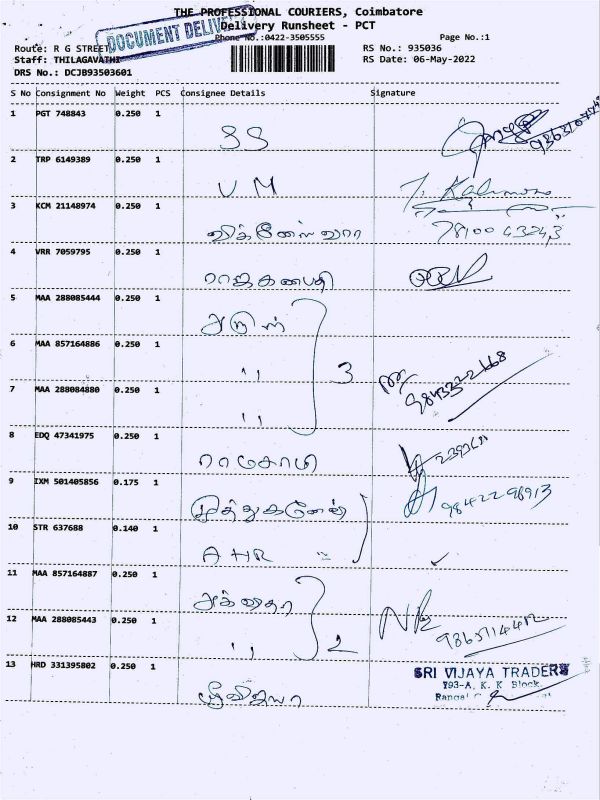 THE PROFESSIONAL COURIERS, Coimbatore
Delivery Runsheet - PCT
DOCUMENT DELIVE
Phone No.:0422-3505555
Page No.:1
Route: R G STREET
RS No.: 935036
Staff: THILAGAVATHI
RS Date: 06-May-2022
DRS No.: DCJB93503601
S No Consignment No Weight PCS Consignee Details Signature
1 PGT 748843 0.250 1
SS
2 TRP 6149389 0.250 1
V M
3 KCM 21148974 0.250 1
விக்னேஸ்வரா 78100 43243
4 VRR 7059795 0.250 1
ராஜகணபதி
5 MAA 288085444 0.250 1
அருள்
6 MAA 857164886 0.250 1
,, 3
7 MAA 288084880 0.250 1
9843322668
,,
8 EDQ 47341975 0.250 1
ராமசாமி
9 IXM 501405856 0.175 1
முத்துகணேஷ் 98422 98913
10 STR 637688 0.140 1
A HR ,,
11 MAA 857164887 0.250 1
12 MAA 288085443 0.250 1
,, 2
13 HRD 331395802 0.250 1
SRI VIJAYA TRADERS
793-A, K. K. Block,
ஸ்ரீவிஜயா